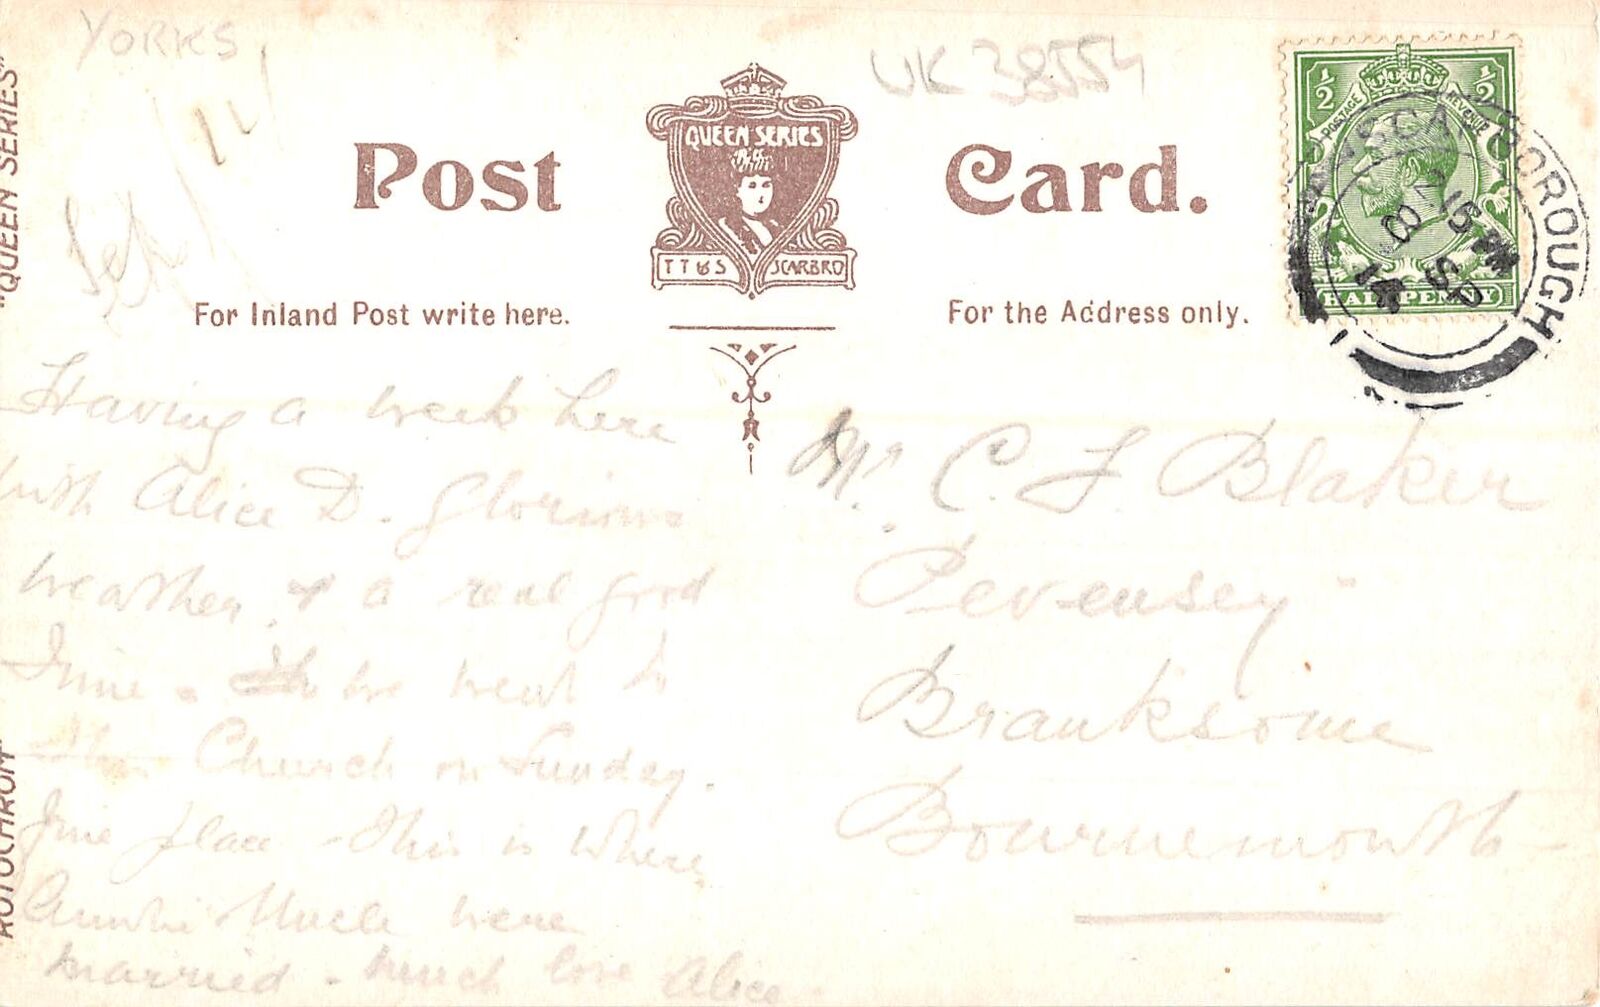 YORKS
UK 38554
Post Card.
QUEEN SERIES
T T & S SCARBRO
For Inland Post write here.
For the Address only.
"QUEEN SERIES"
ROTOCHROM
½ ½
POSTAGE REVENUE
HALFPENNY
SCARBOROUGH
8 SP
14
Sept / 14
Having a week here
with Alice D. Glorious
weather, & a real good
time. we went to
this Church on Sunday.
Fine place. This is where
Auntie & Uncle were
married. Much love Alice
Mr. C. F. Blaker
Pevensey
Branksome
Bournemouth